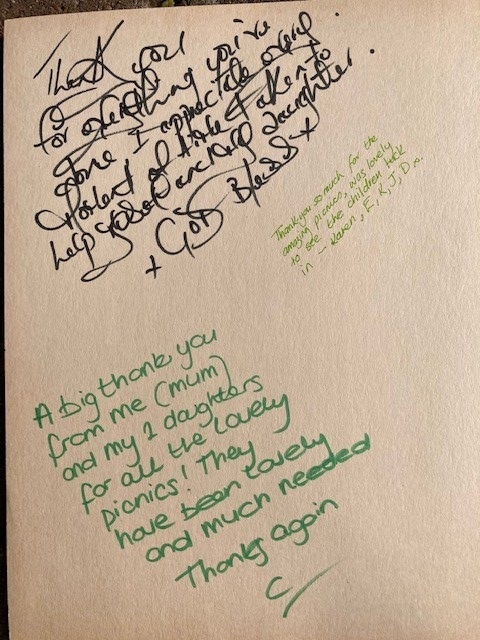 Thank you
for everything you've
done I appreciate every
moment of time taken to
help daughter.
+ God Bless x
Thank you so much for the
amazing picnics, was lovely
to see the children tuck
in - Karen, F, K, J, D x.
A big thank you
from me (mum)
and my 2 daughters
for all the lovely
picnics! They
have been lovely
and much needed
Thanks again
C